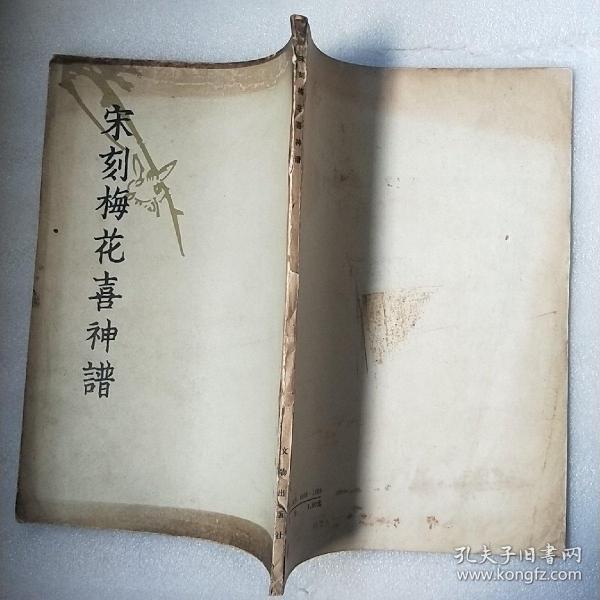 宋刻梅花喜神譜
宋刻梅花喜神譜
文物出版社
孔夫子旧书网
www.kongfz.com